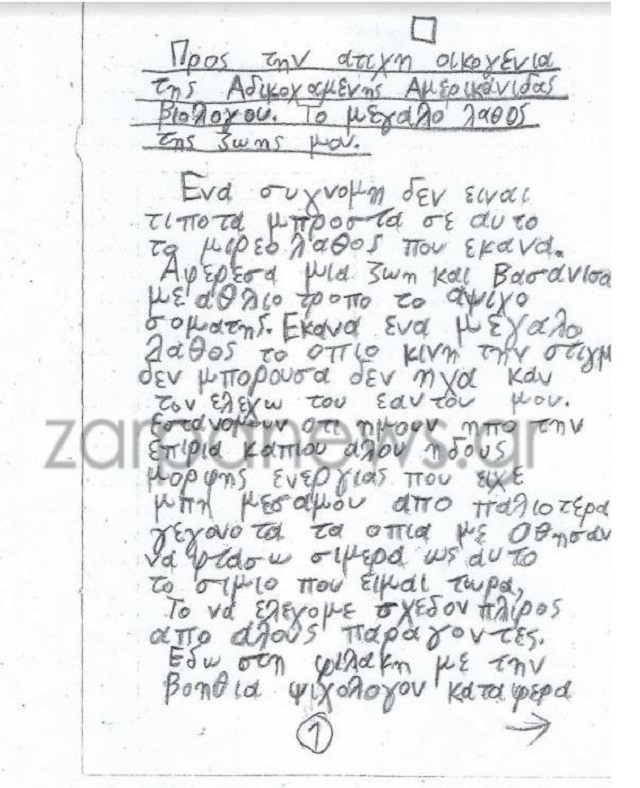 Προς την ατιχη οικογένια
της Αδικοχαμένης Αμερικάνιδας
βιολογου. Το μεγαλο λαθος
της ζωης μου.
Ενα συγνομη δεν ειναι
τιποτα μπροστα σε αυτο
το μιρεο λαθος που εκανα.
Αφερεσα μια ζωη και βασανισα
με αθλιο τροπο το αψιχο
σοματης. Εκανα ενα μεγαλο
λαθος το οπιο κινη την στιγμ
δεν μπορουσα δεν ηχα καν
τον ελεγχω του εαυτου μου.
εστανομουν οτι ημουν ηπο την
επιρια καπιου αλου ηδους
μορφης ενεργιας που ειχε
μπη μεσαμου απο παλιοτερα
γεγονοτα τα οπια με οθησαν
να φτασω σιμερα ως αυτο
το σιμιο που ειμαι τωρα,
Το να ελεγομε σχεδον πλιρος
απο αλους παραγοντες.
Εδω στη φιλακη με την
βοηθια ψιχολογου καταφερα
1 →
zarpanews.gr